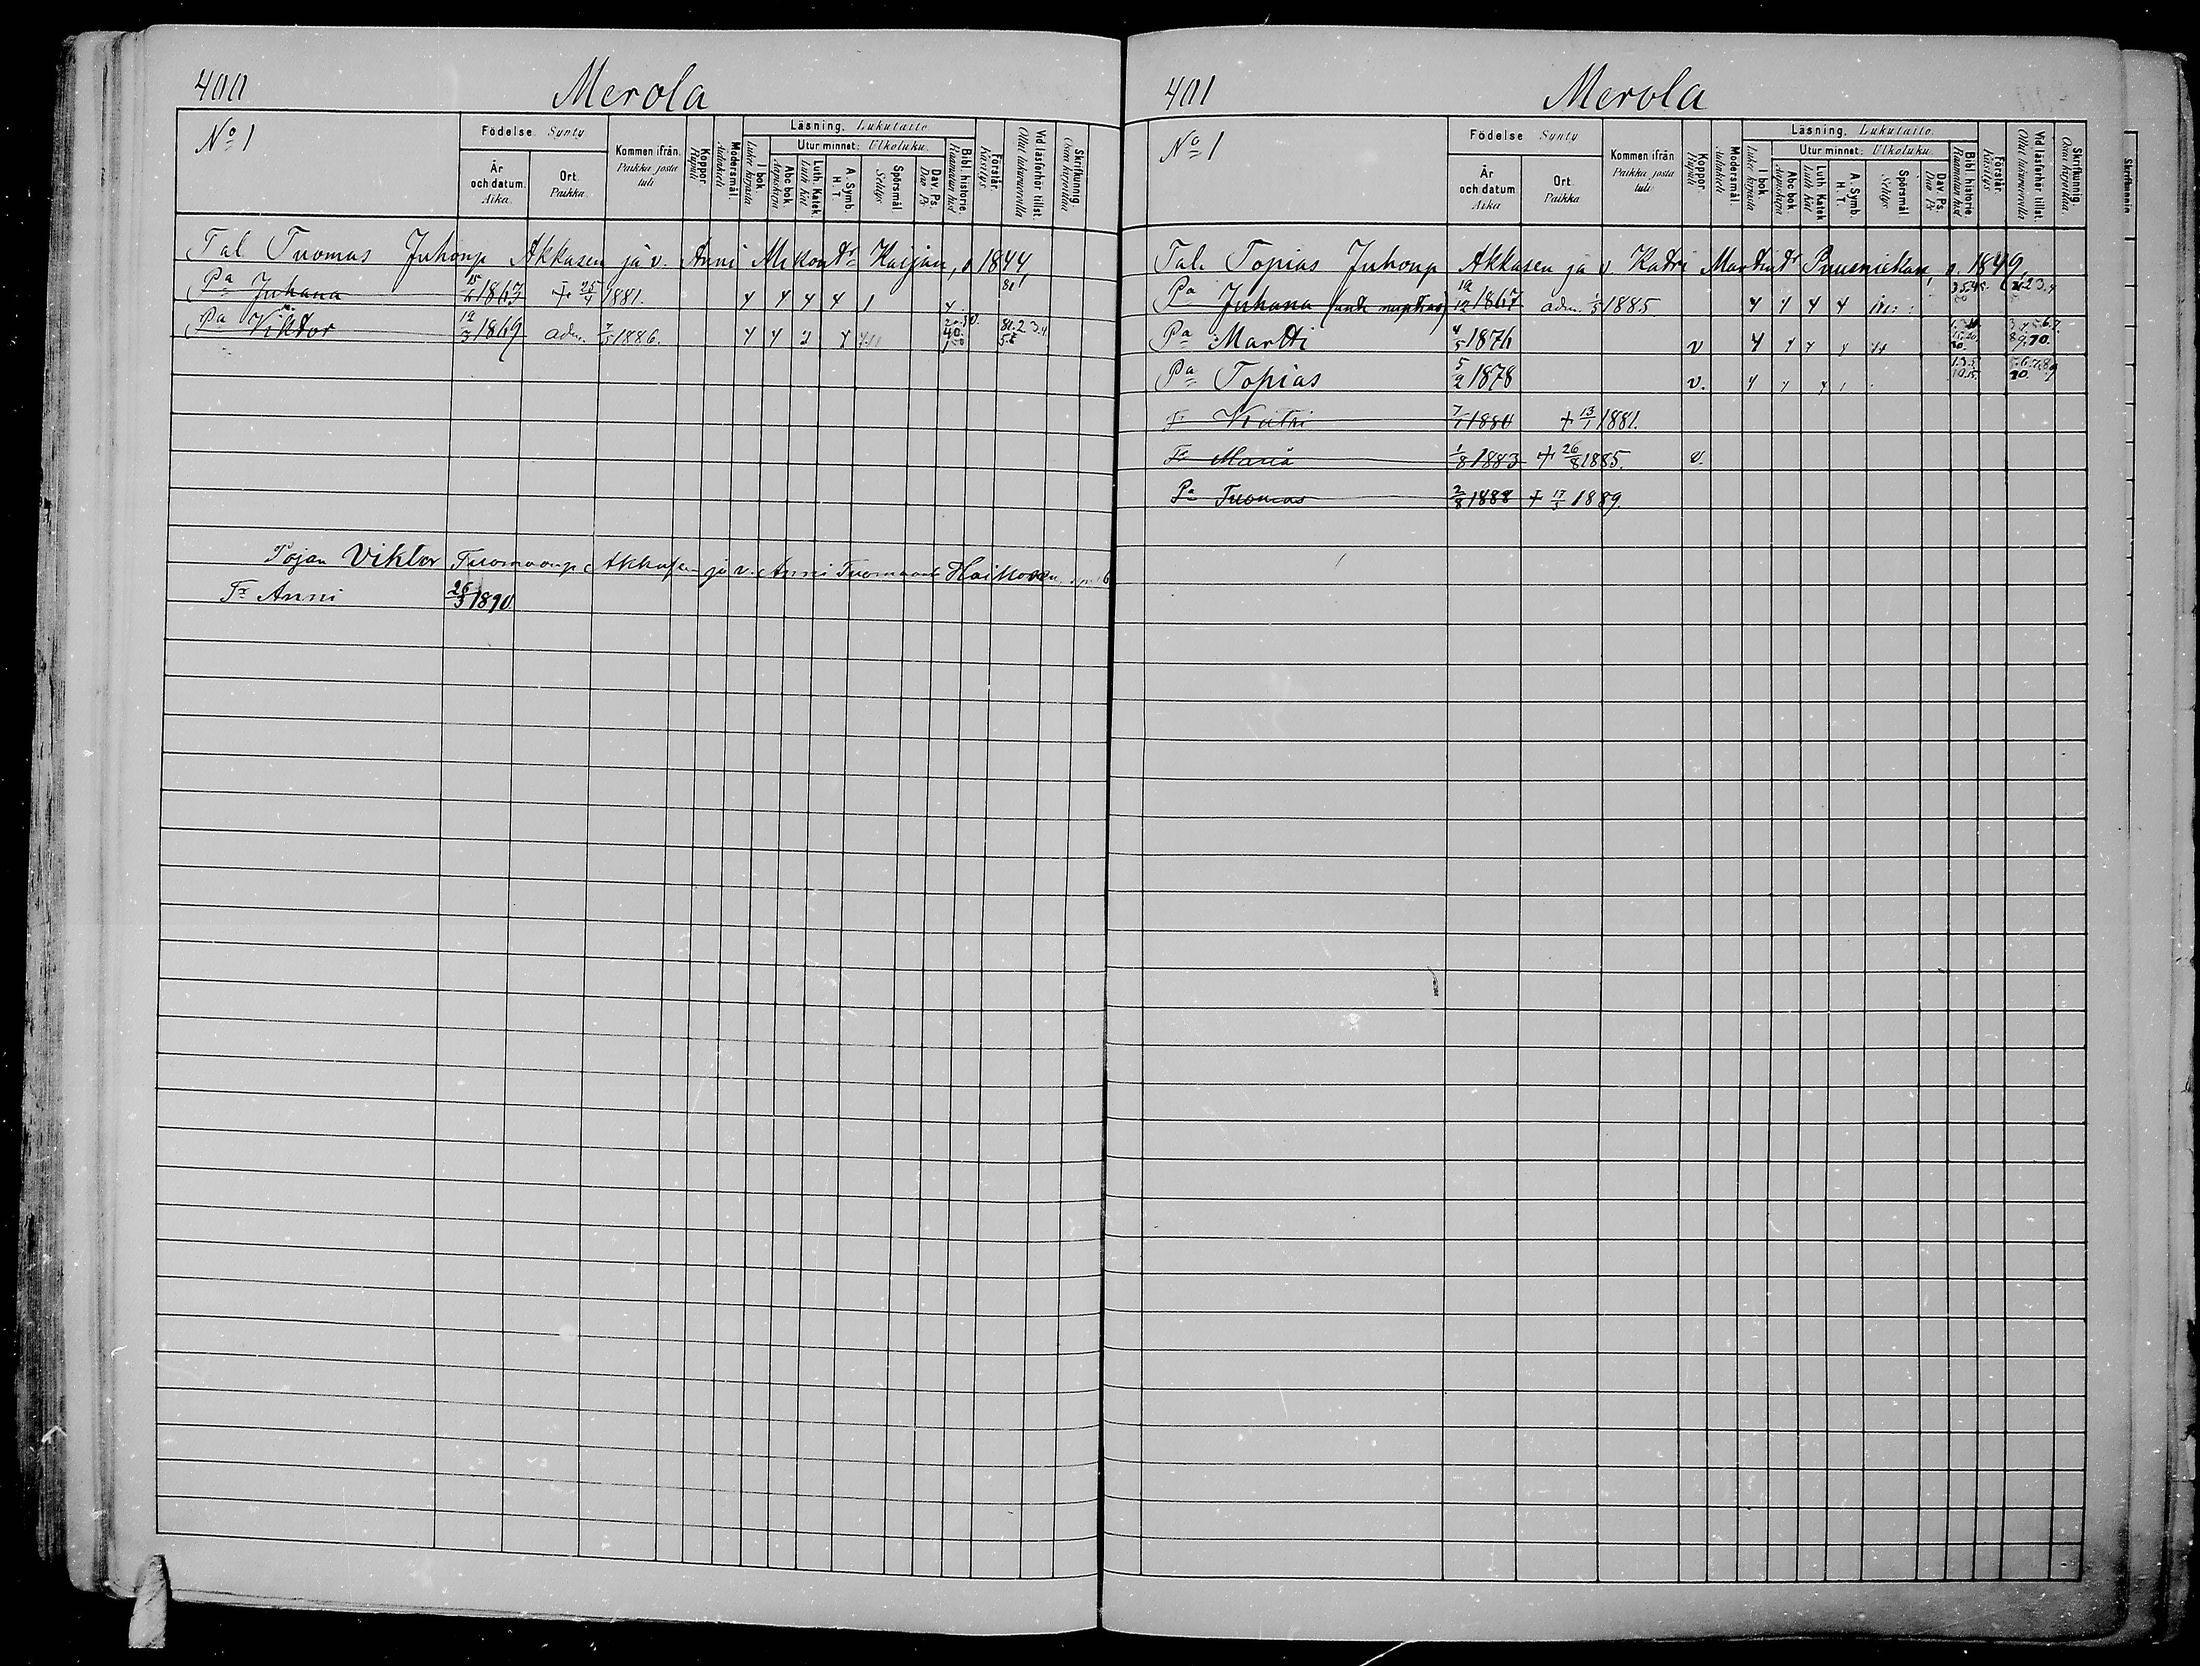 400 Merola
No 1
Födelse. Synty
År och datum. Aika.
Ort. Paikka.
Kommen ifrån. Paikka, josta tuli
Koppor. Rupuli
Modersmål. Äidinkieli
Läsning. Lukutaito
I bok. Lukee kirjasta
Utur minnet: Ulkoluku.
Abc bok. Aapiskirja
Luth. Katek. Luth Kat
A. Symb. H. T.
Spörsmål. Selitys
Dav. Ps. Dav Ps
Bibl. historie. Raamatun hist
Förstår. Käsitys
Vid läsförhör tillst. Ollut lukuruavolla
Skrifkunnig. Osaa kirjoittaa
Tal Tuomas Juhonp Akkasen ja v. Anni Mikontr Haijan, s 1844,
Pa Juhana 15/6 1863 + 25/4 1881. 4 4 4 4 1 4 80
Pa Viktor 19/3 1869 adm. 7/5 1886. 4 4 2 4 40. 80. 2 3
Pojan Viktor Tuomaanp Akkasen ja v. Anni Tuomaant Haikosen
Tr Anni 26/3 1890
401 Merola
No 1
Födelse Synty
År och datum Aika
Ort Paikka
Kommen ifrån Paikka, josta tuli
Koppor. Rupuli
Modersmål. Äidinkieli
Läsning. Lukutaito.
I bok. Lukee kirjasta
Utur minnet: Ulkoluku
Abc bok. Aapiskirja
Luth. Katek. Luth Kat
A. Symb. H. T.
Spörsmål Selitys
Dav. Ps. Dav Ps
Bibl. historie Raamatun hist
Förstår. Käsitys
Vid läsförhör tillst.
Skrifkunnig. Osaa kirjoittaa.
Tal. Topias Juhonp Akkasen ja v. Katri Martintr Puusniekan, s. 1849,
Pa Juhana (ante nuptias) 19/12 1867 adm. 1/5 1885 4 4 4 4
Pa Martti 4/5 1876 v 4 4 4 4
Pa Topias 5/2 1878 v. 4 4 4
Tr Katri 7/1 1880 + 13/1 1881.
Tr Maria 1/8 1883 + 26/8 1885. v.
Pa Tuomas 2/8 1888 + 17/3 1889.